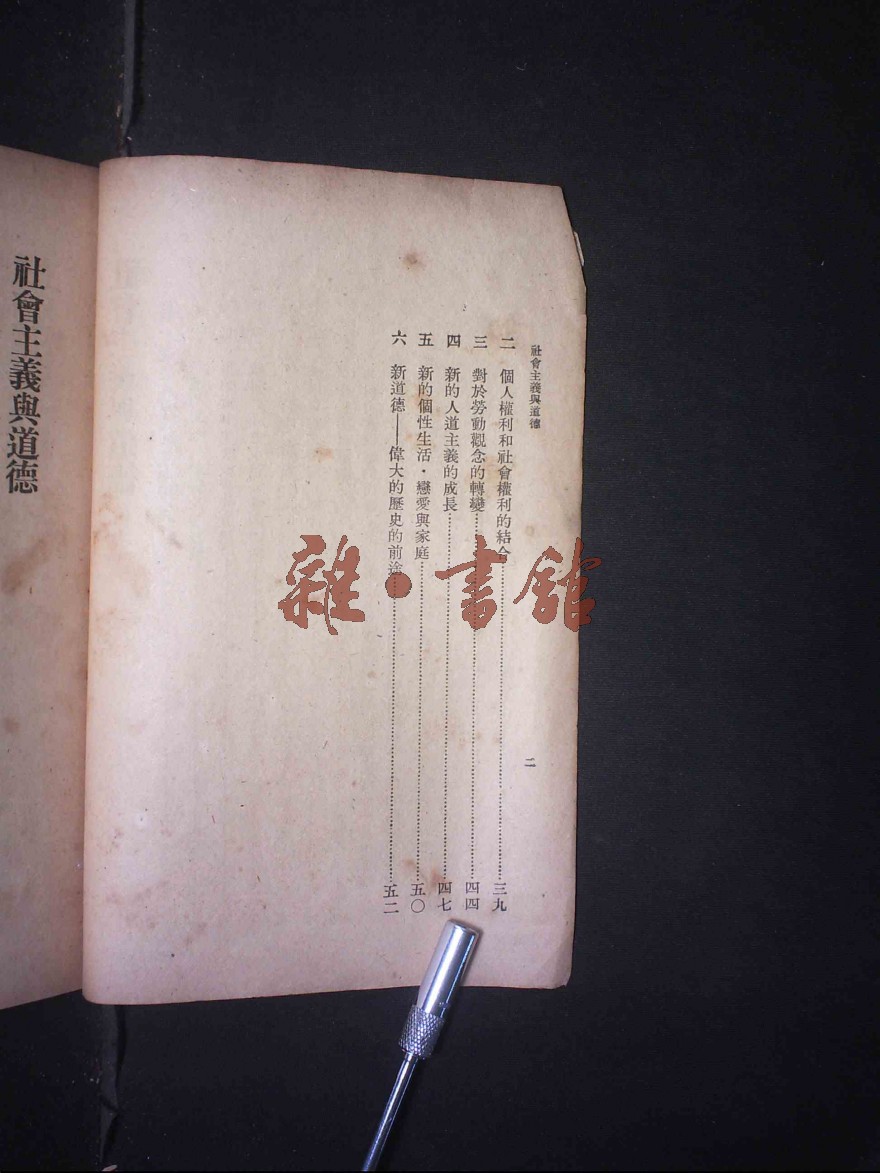 社會主義與道德
二　個人權利和社會權利的結合……三九
三　對於勞動觀念的轉變……四四
四　新的人道主義的成長……四七
五　新的個性生活·戀愛與家庭……五〇
六　新道德——偉大的歷史的前途……五二
二
社會主義與道德
雜·書館